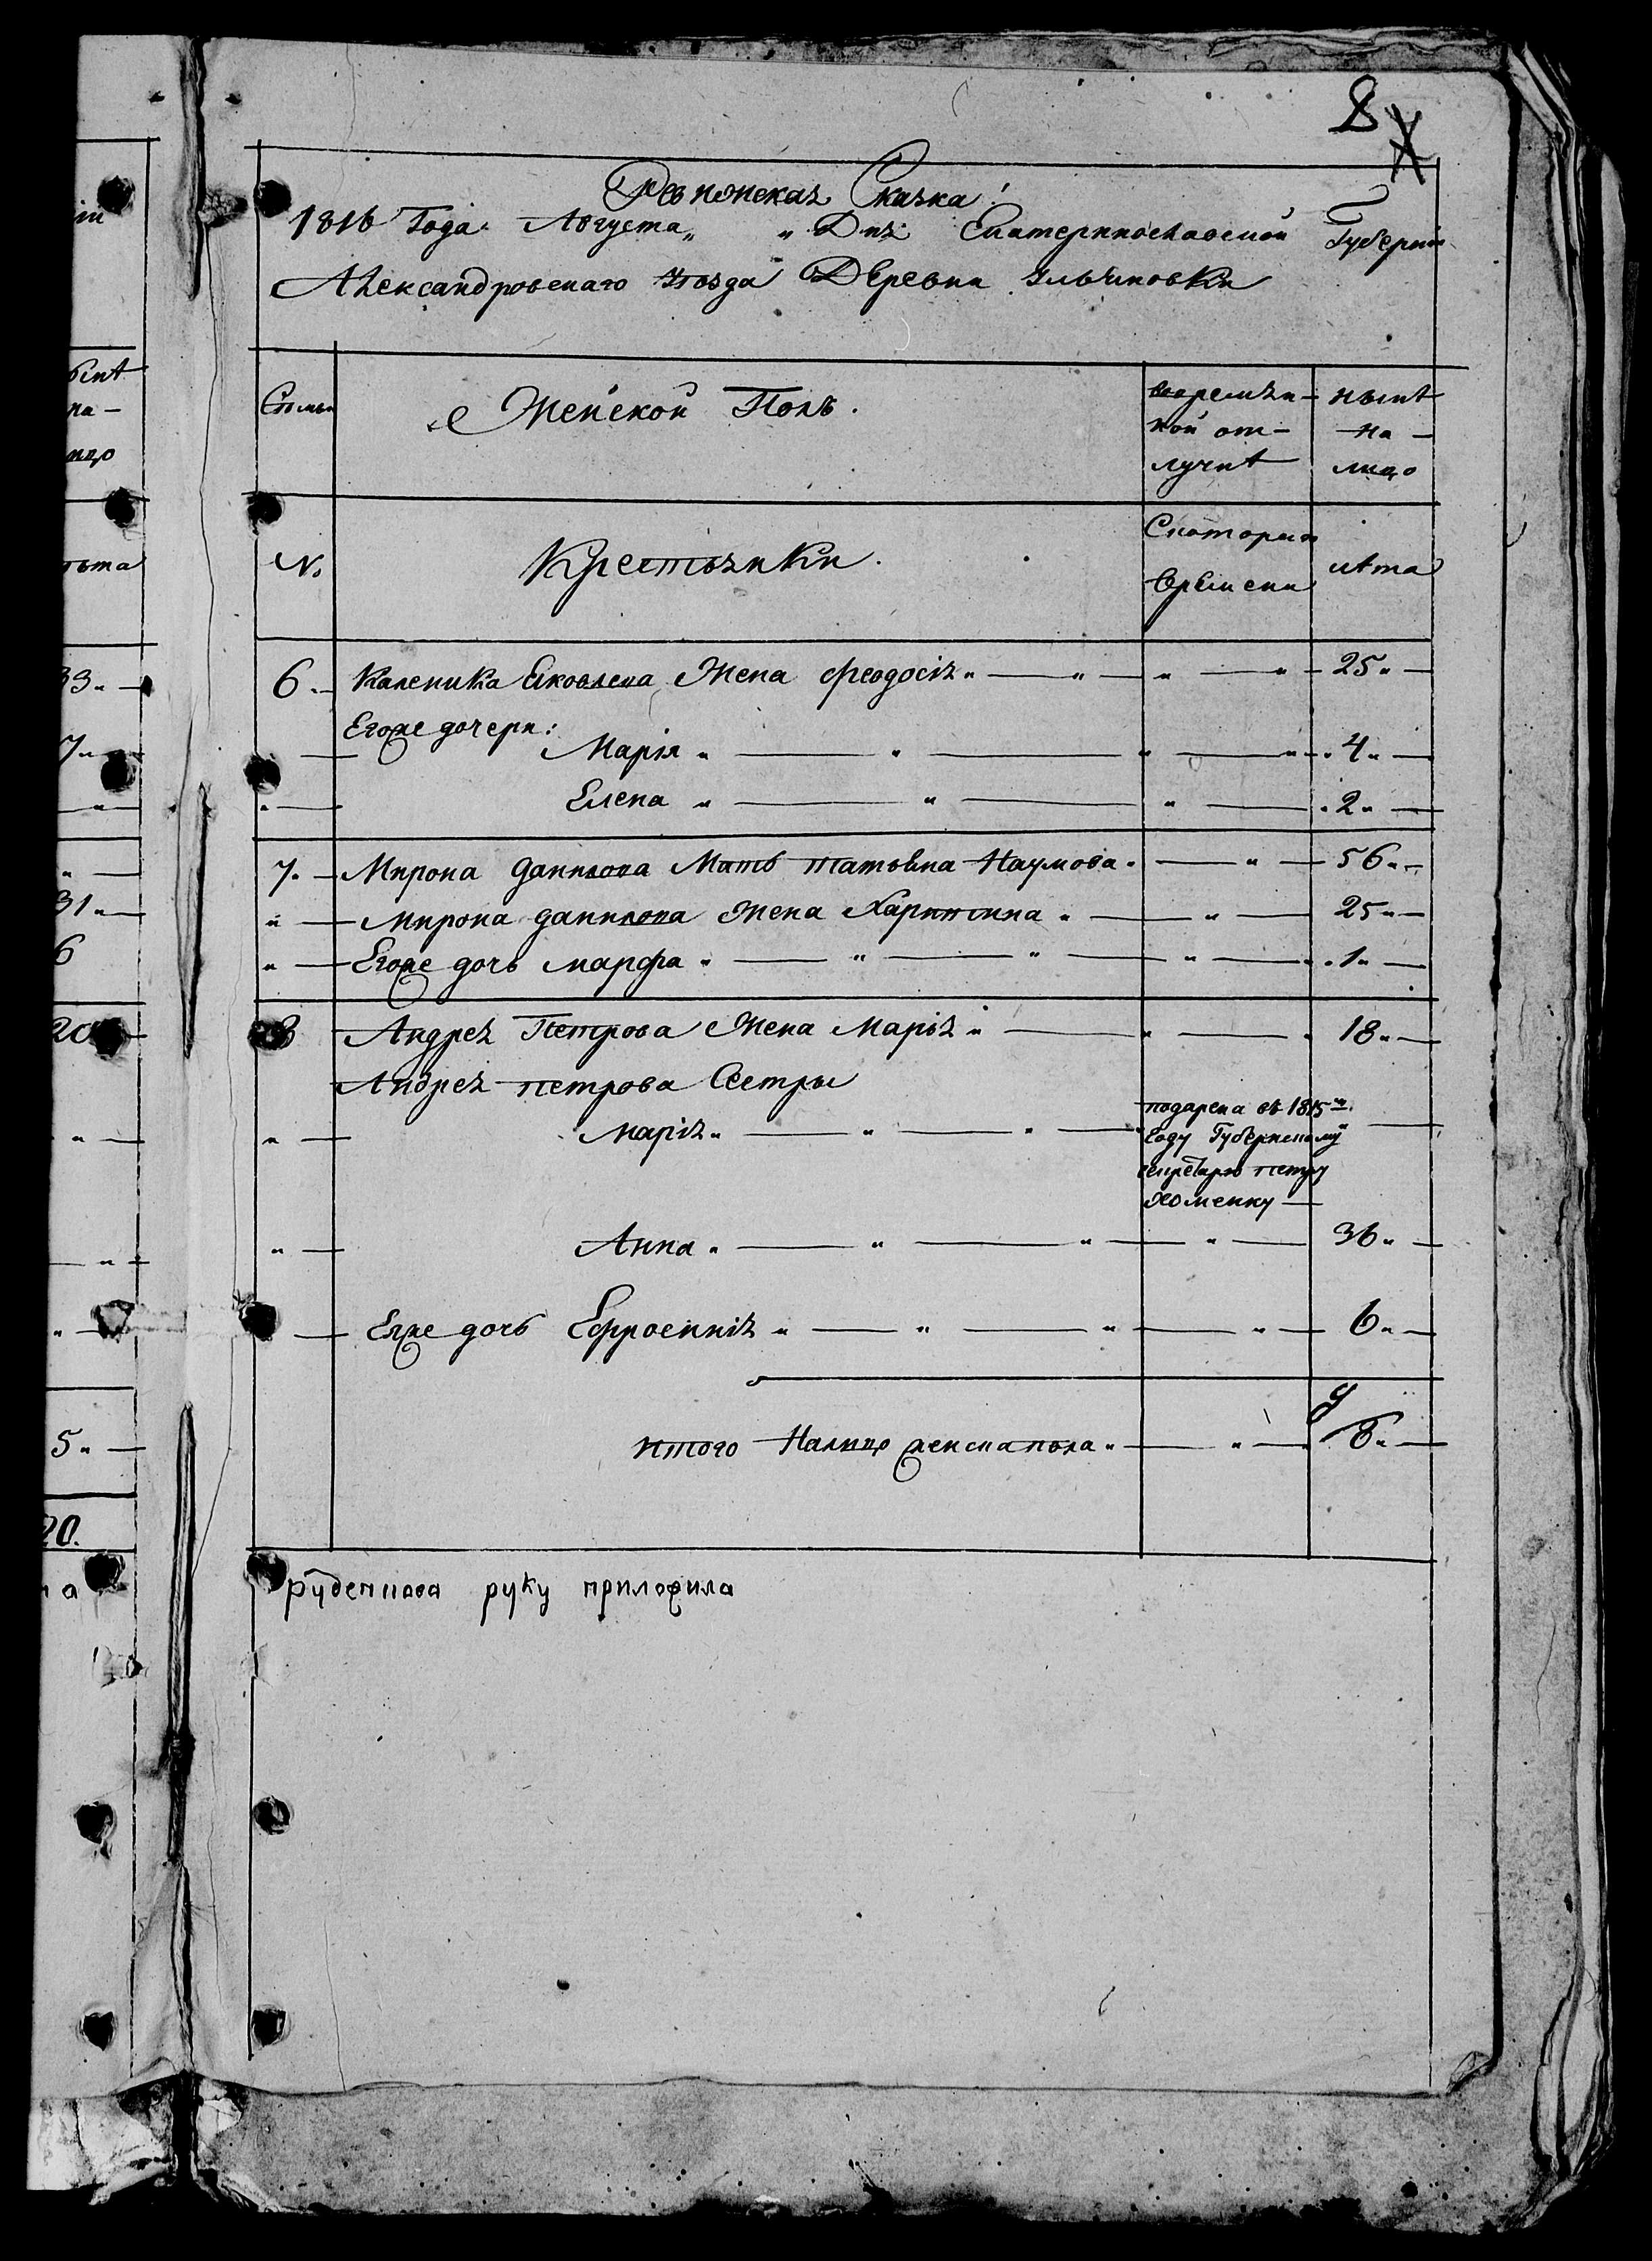 8
Ревижская Сказка!
1816 Года Августа „ „ Дня Екатеринославской Губерніи
Александровскаго уѣзда Деревни Ильчиновки
Семьи Женской Полъ. во времѣн- нынѣ
ной от- на -
лучкѣ лицо
№ Крестьянки. Скоторыхъ
Времени лѣта
6. Каленика Яковлева Жена Феодосія „ — „ — „ — „ — 25 „ —
Егоже дочери:
Марія „ — „ — „ — „ — 4 „ —
„ — Елена „ — „ — „ — 2 „ —
7. — Мирона данилова Мать татьяна Наумова „ — „ — 56 „ —
„ — Мирона данилова Жена Харитина „ — „ — 25 „ —
„ — Егоже дочь марфа „ — „ — „ — „ — 1 „ —
8 Андрея Петрова Жена Марья „ — „ — „ 18 „ —
Андрея петрова Сестры
подарена въ 1815м
„ — марія „ — „ — „ — Году Губернскому „ —
секретарю петру
хоменку —
„ — Анна „ — „ — „ — „ — 36 „ —
— Еяже дочь Ефросинія „ — „ — „ — „ — 6 „ —
9
итого Налицо женска пола „ — „ — 8 „ —
руденкова руку приложила